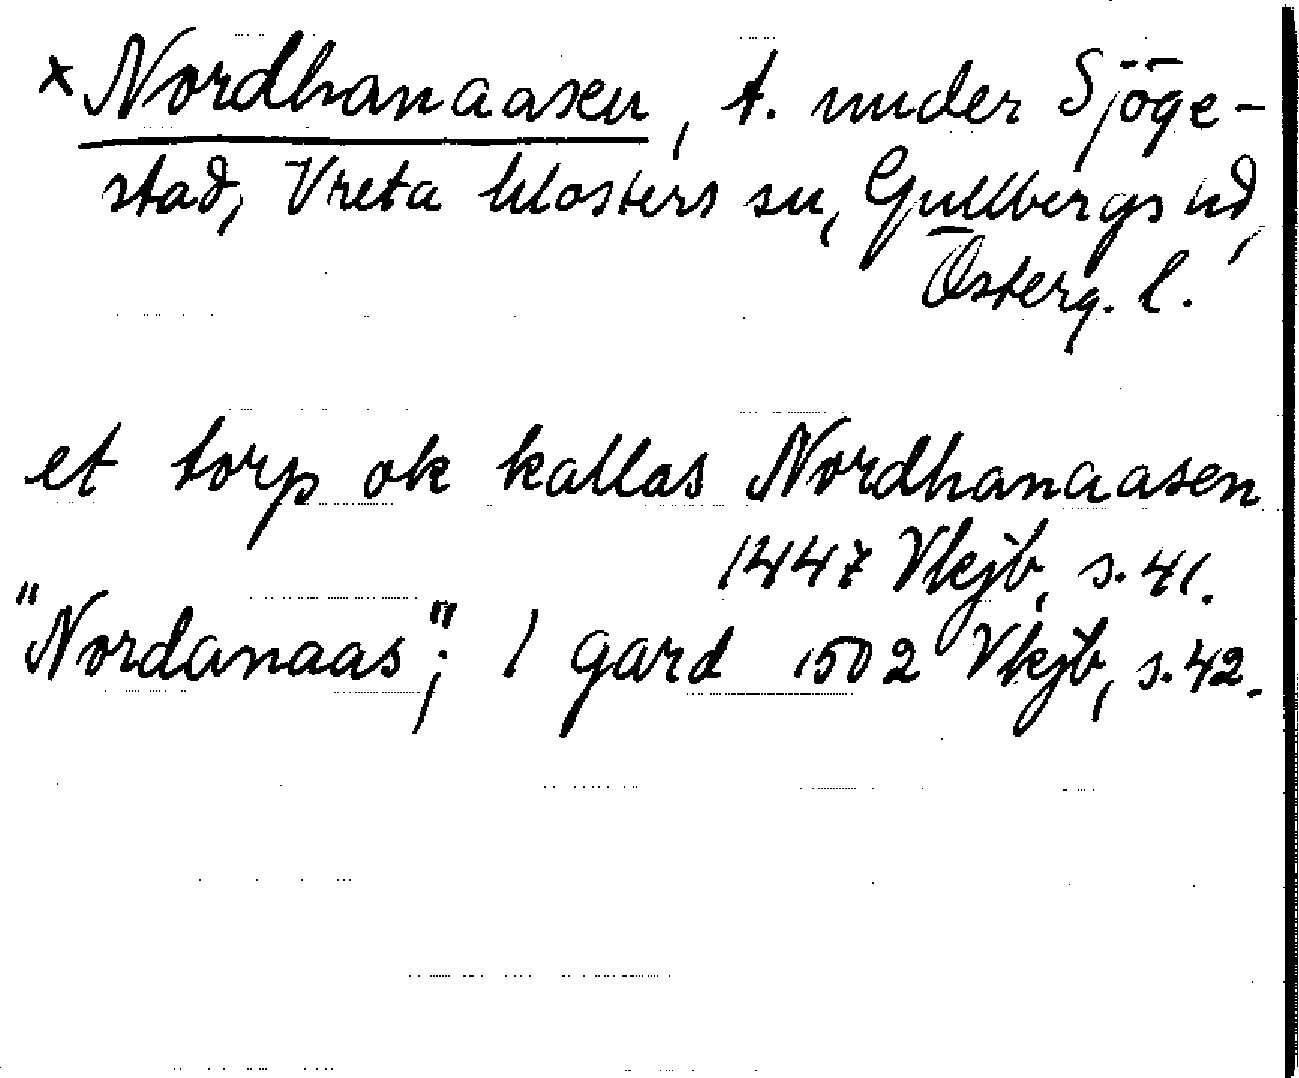 x Nordhanaasen, t. under Sjöge-
stad, Vreta klosters sn, Gullbergs hd,
Österg. l.
et torp ok kallas Nordhanaasen
1447 Vkjb, s. 41.
"Nordanaas"; 1 gard 1502 Vkjb, s. 42.